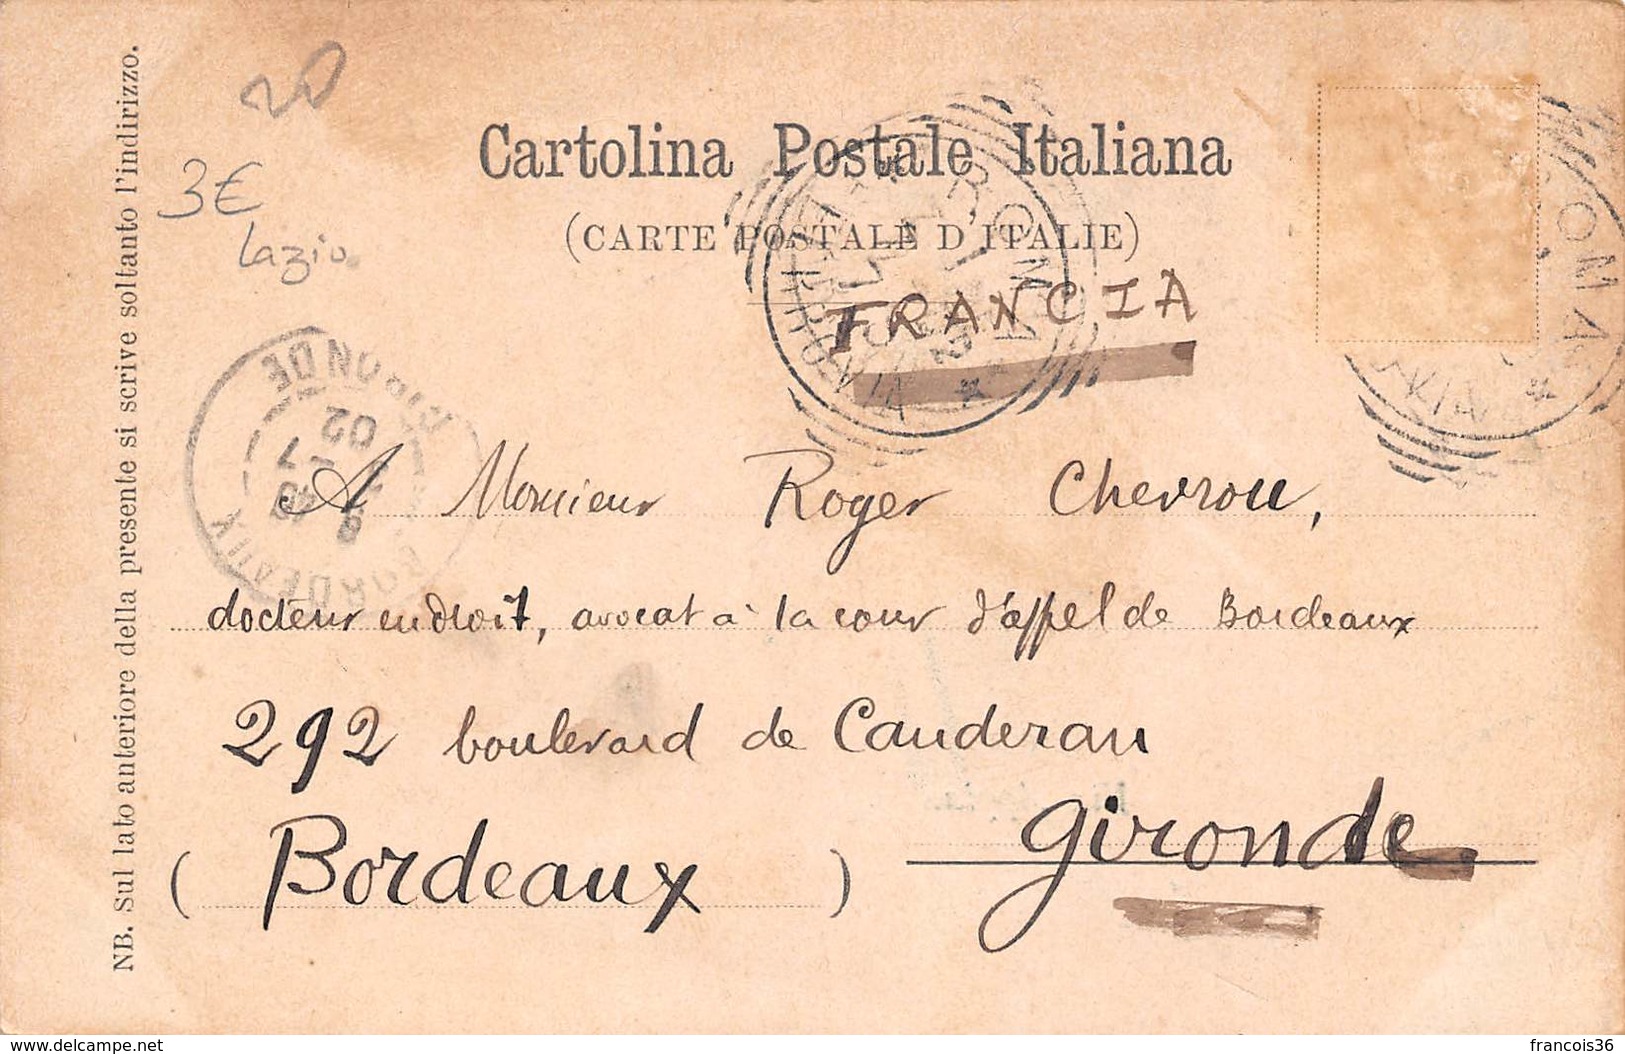 20
3€
Lazio
Cartolina Postale Italiana
(CARTE POSTALE D'ITALIE)
ROMA
ROMA
FRANCIA
GIRONDE
02
7
BORDEAUX
A Monsieur Roger Chevrou,
docteur en droit, avocat à la cour d'appel de Bordeaux
292 boulevard de Cauderan
(Bordeaux) Gironde
NB. Sul lato anteriore della presente si scrive soltanto l'indirizzo.
delcampe.net
francois36